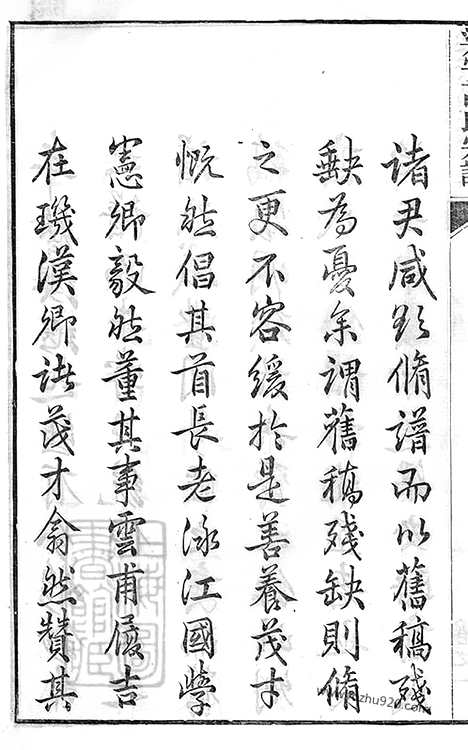 諸尹咸欲脩譜而以舊稿殘
缺為憂余謂舊稿殘缺則脩
之更不容緩於是善養茂才
慨然倡其首長老泳江國學
憲卿毅然董其事雲甫履吉
在璣漢卿諸茂才翕然贊其
www.zhu920.com